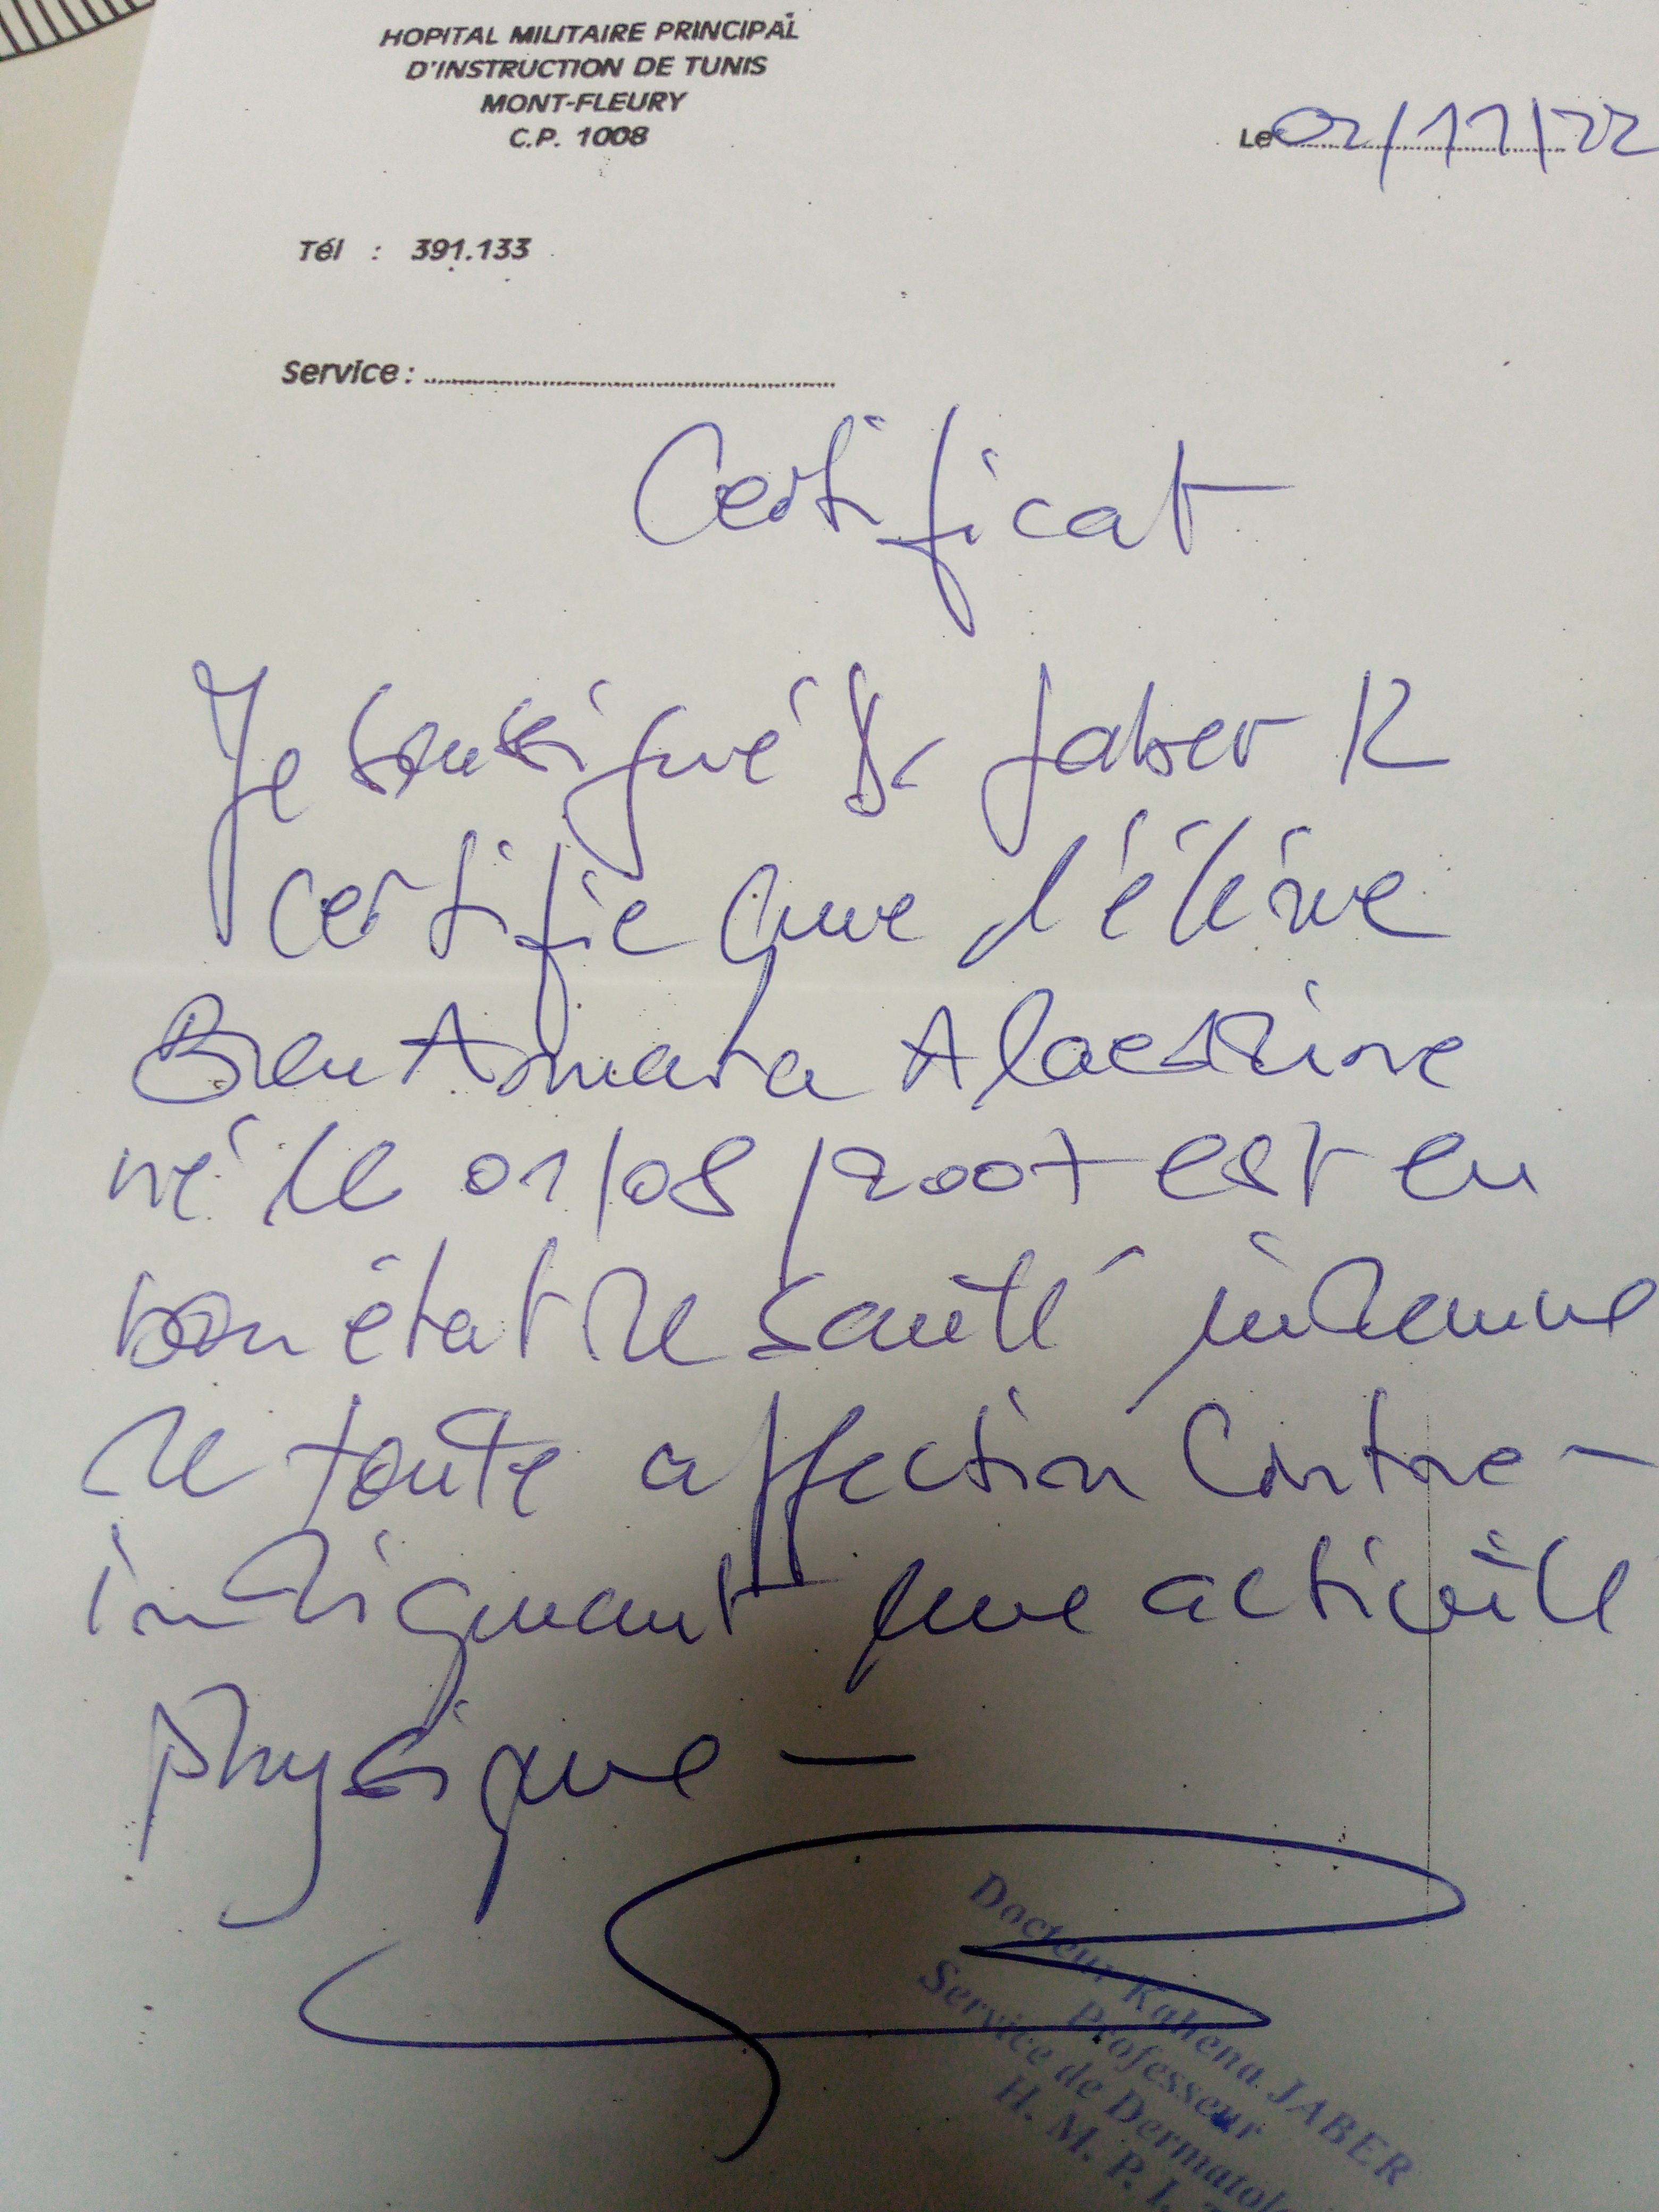 HOPITAL MILITAIRE PRINCIPAL
D'INSTRUCTION DE TUNIS
MONT-FLEURY
C.P. 1008
Le 02/11/22
Tél : 391.133
Service :
Certificat
Je soussigné Dr Jaber K
certifie que l'élève
Ben Ammara Alaeddine
né le 01/08/2007 est en
bon état de santé indemne
de toute affection contre-
indiquant une activité
physique -
Docteur Kahena JABER
Professeur
Service de Dermatol
H. M. P. I.